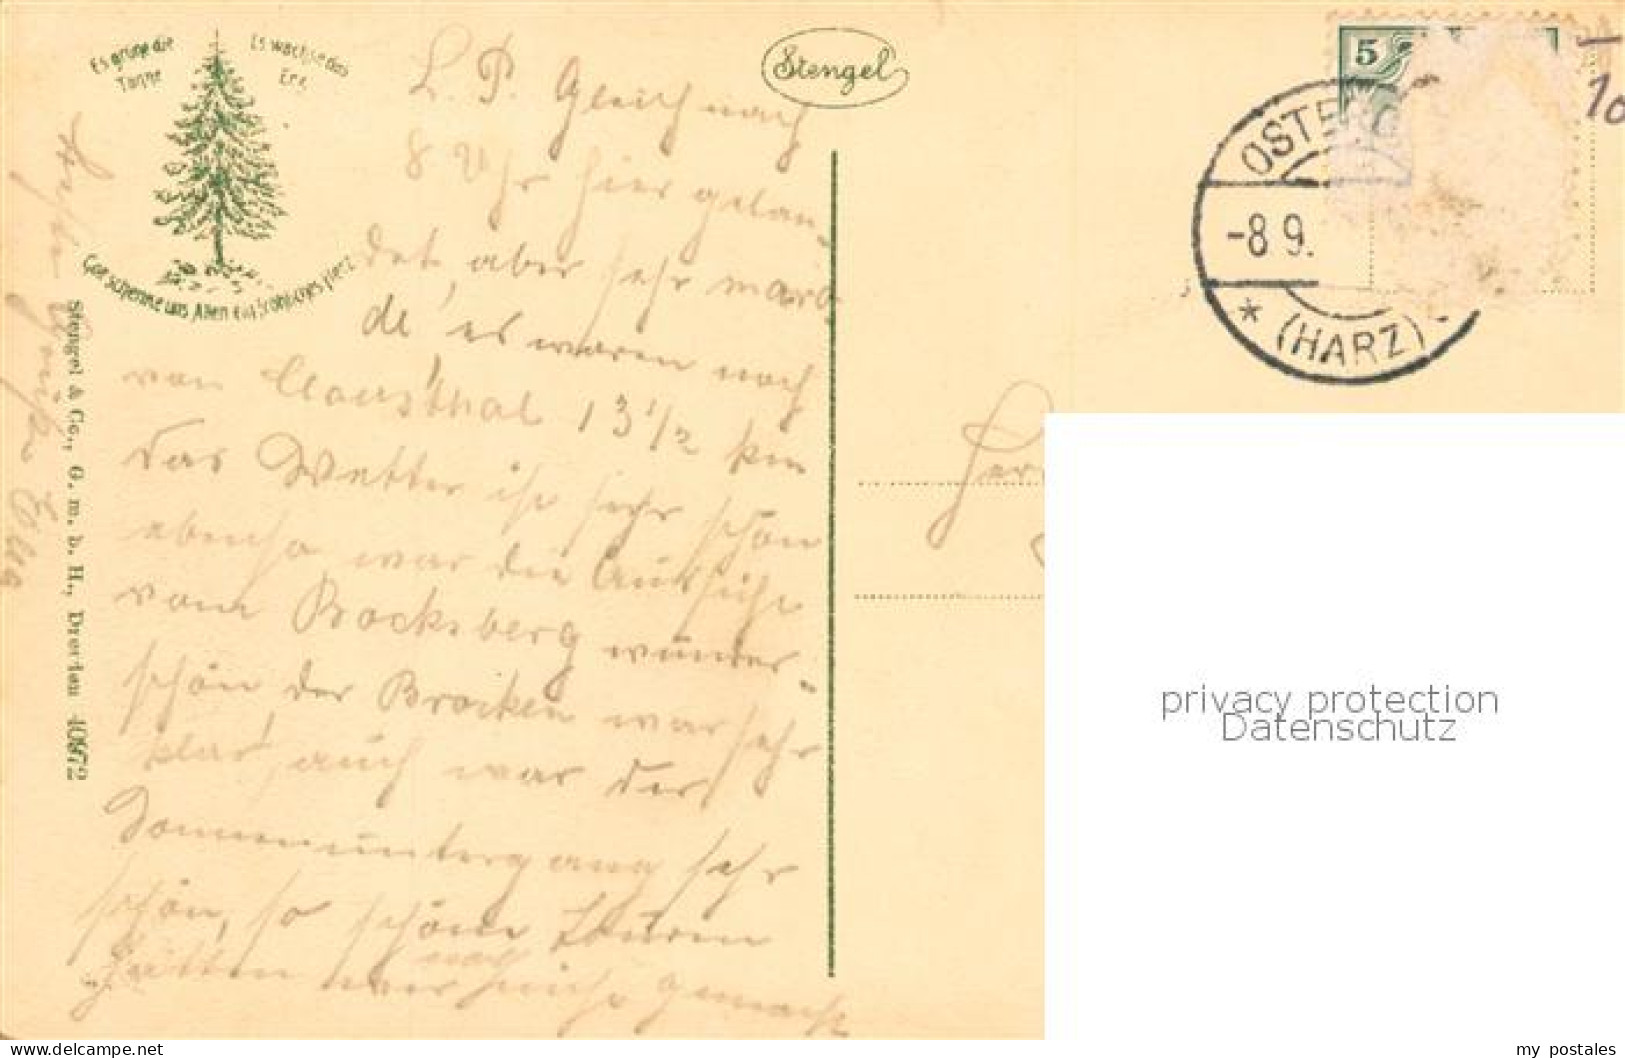 Es grüne die
Tanne
Es wachse das
Erz
Gott schenke uns Allen ein fröhliches Herz
Stengel
Stengel & Co., G. m. b. H., Dresden 40872
L. P. Gleich nach
8 Uhr hier gelan-
det, aber sehr maro-
de, es waren noch
von Clausthal 13 1/2 km
das Wetter ist sehr schön
ebenso war die Aussicht
vom Bocksberg wunder-
schön der Brocken war sehr
klar, auch war der
Sonnenuntergang sehr
schön, so schöne Touren
hätten wir noch nicht gemacht
Grüße
5
10
OSTER
-8 9.
* (HARZ)
Herr
privacy protection
Datenschutz
www.oldthing.com
my postales